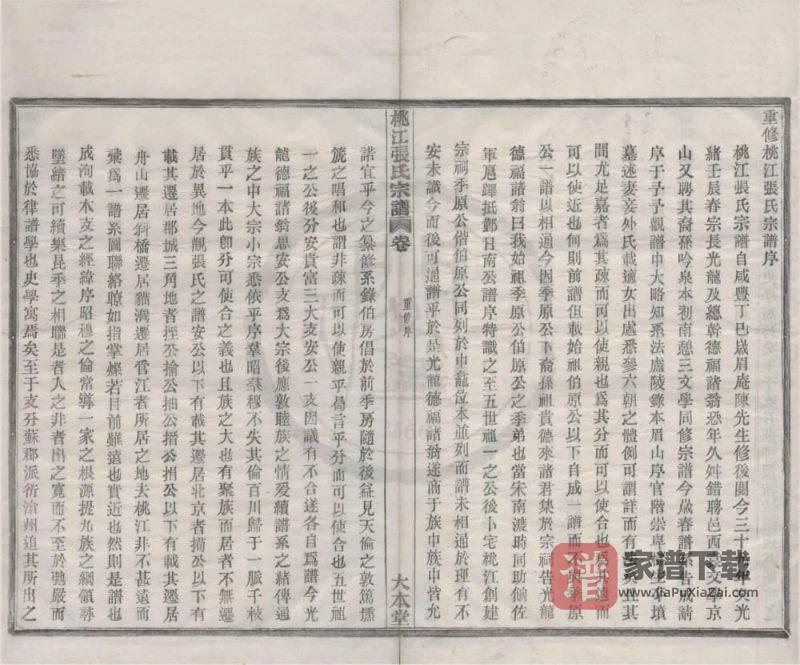 重修桃江張氏宗譜序
桃江張氏宗譜自咸豐丁巳歲眉庵陳先生修後閱今三十
緒壬辰春宗長光龍及總幹德福諸翁恐年久舛錯聘邑西文學京
山又聘其裔孫吟泉本初南憩三文學同修宗譜今歲春譜
序于予觀譜中大略知系法廬陵錄本眉山序官階崇卑
墓述妻妾外氏載適女出處悉參六朝之體例可謂詳而有
間尤足嘉者爲其疎而可以使親也爲其分而可以使合也
可以使近也何則前譜但載始祖伯原公以下自成一譜而
公一譜以相通今因季原公下裔孫祖貴德來諸君集於宗祠告光龍
德福諸翁曰我始祖季原公伯原公之季弟也當宋南渡時同助
軍扈蹕抵鄞日南公譜序特識之至五世祖一之公後卜宅桃江創建
宗祠季原公偕伯原公同列於中龕位本並列而譜未相通於理有不
安未識今而後可通譜乎於是光龍德福諸翁遂商于族中族中皆允
桃江張氏宗譜
卷
重修序
大本堂
諾宜乎今之纂修系錄伯房倡於前季房隨於後益見天倫之敦篤壎
篪之唱和也謂非疎而可以使親乎曷言乎分而可以使合也五世祖
一之公後分安貴富三大支安公一支因議有不合遂各自爲譜今光
龍德福諸翁思安公支爲大宗後應敦睦族之情爰續譜系之緒傳
族之中大宗小宗悉依乎序羣昭羣穆不失其倫百川歸于一脈千枝
貫乎一本此卽分可使合之義也且族之大也有聚族而居者不無遷
居於異地今觀張氏之譜安公以下有載其遷居北京者揹公以下有
載其遷居郡城三角地者挃公揄公抽公搢公捐公以下有載其遷居
舟山遷居斜橋遷居貓漕遷居管江者所居之地去桃江非不甚遠而
彙爲一譜系圖聯絡瞭如指掌燦若目前雖遠也實近也然則是譜也
成洵載本支之經緯序昭穆之倫常導一家之根源提九族之綱領尋
墜緒之可續樂昆季之相聯是者人之非者出之寬而不至於馳嚴而
悉協於律譜學也史學寓焉矣至于支分蘇郡派衍滄州迫其所出之
譜
家谱下载
www.JiaPuXiaZai.com